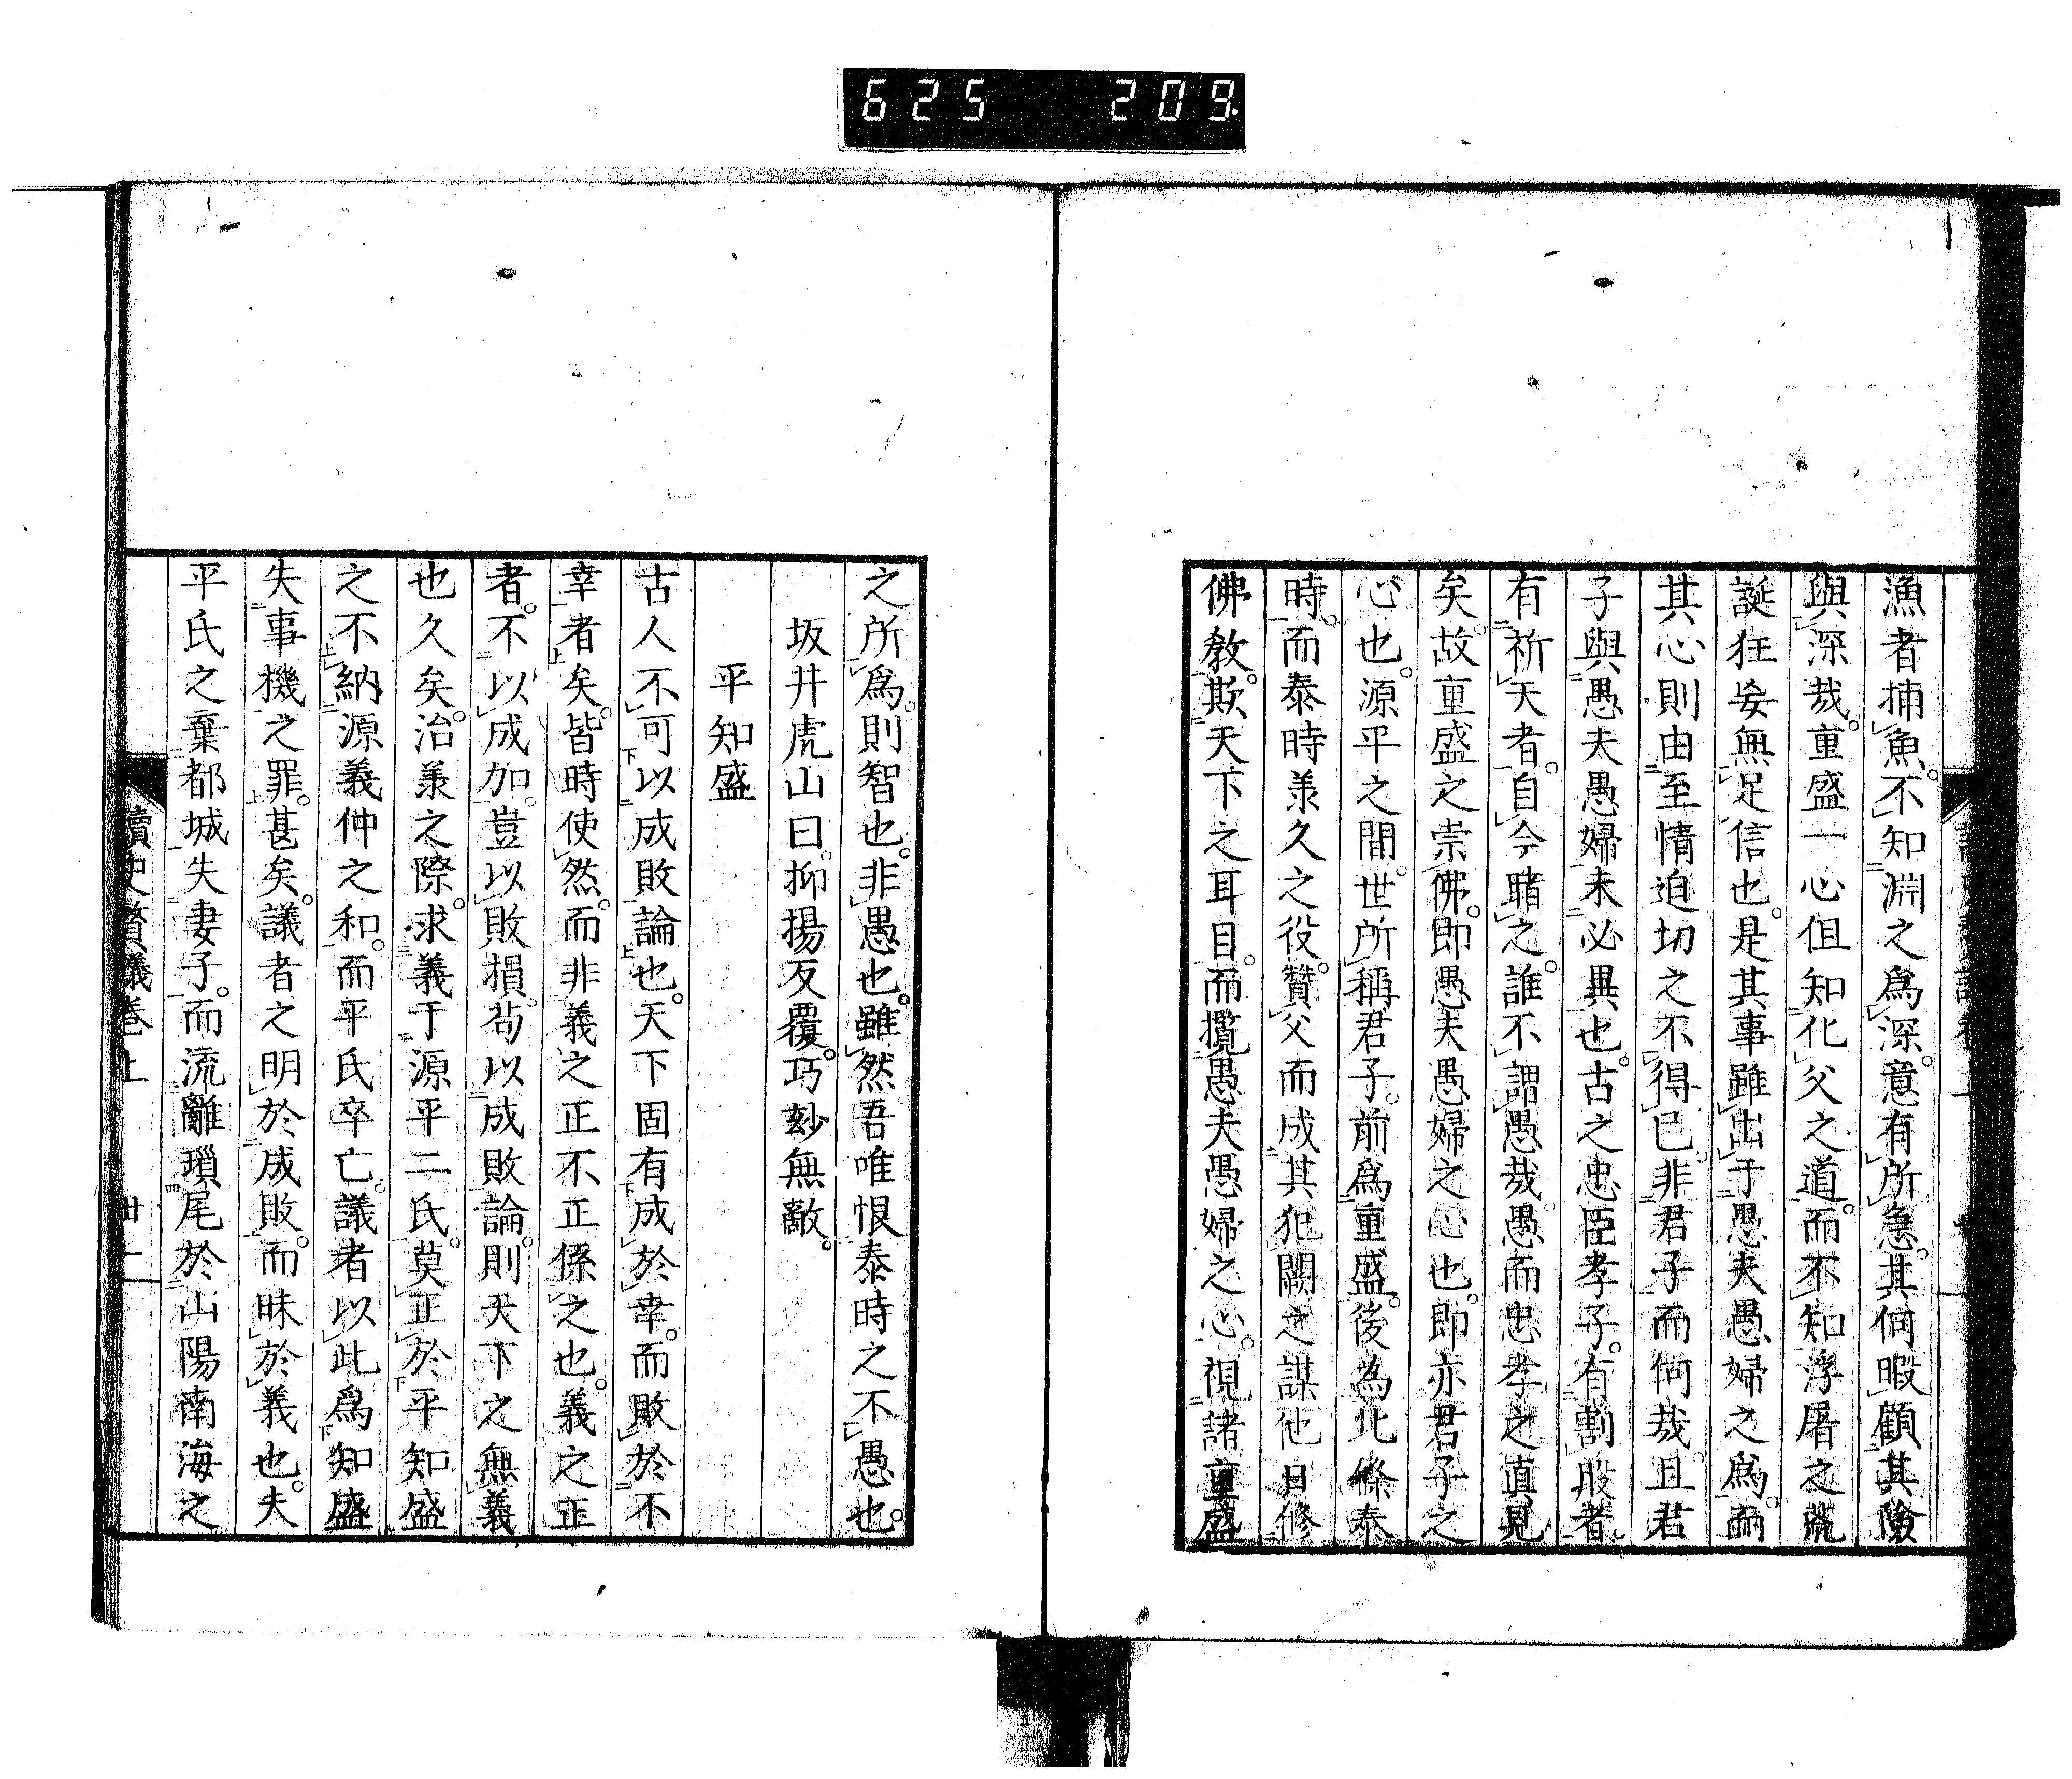 625 209.
漁者捕魚。不知淵之為深。意有所急。其何暇顧其險
與深哉。重盛一心但知化父之道。而不知浮屠之荒
誕狂妄無足信也。是其事雖出于愚夫愚婦之為。而
其心則由至情迫切之不得已。非君子而何哉。且君
子與愚夫愚婦未必異也。古之忠臣孝子。有割股者。
有祈天者。自今睹之。誰不謂愚哉。愚而忠孝之真見
矣。故重盛之崇佛。即愚夫愚婦之心也。即亦君子之
心也。源平之間。世所稱君子。前為重盛。後為北條泰
時。而泰時羕久之役。贊父而成其犯闕之謀。他日修
佛教。欺天下之耳目。而攬愚夫愚婦之心。視諸重盛
之所為。則智也。非愚也。雖然吾唯恨泰時之不愚也。
坂井虎山曰。抑揚反覆。巧玅無敵。
平知盛
古人不可以成敗論也。天下固有成於幸。而敗於不
幸者矣。皆時使然。而非義之正不正係之也。義之正
者。不以成加。豈以敗損。苟以成敗論。則天下之無義
也久矣。治羕之際。求義于源平二氏。莫正於平知盛
之不納源義仲之和。而平氏卒亡。議者以此為知盛
失事機之罪。甚矣。議者之明於成敗。而昧於義也。夫
平氏之棄都城。失妻子。而流離瑣尾於山陽南海之
讀史贅議卷上 廿一